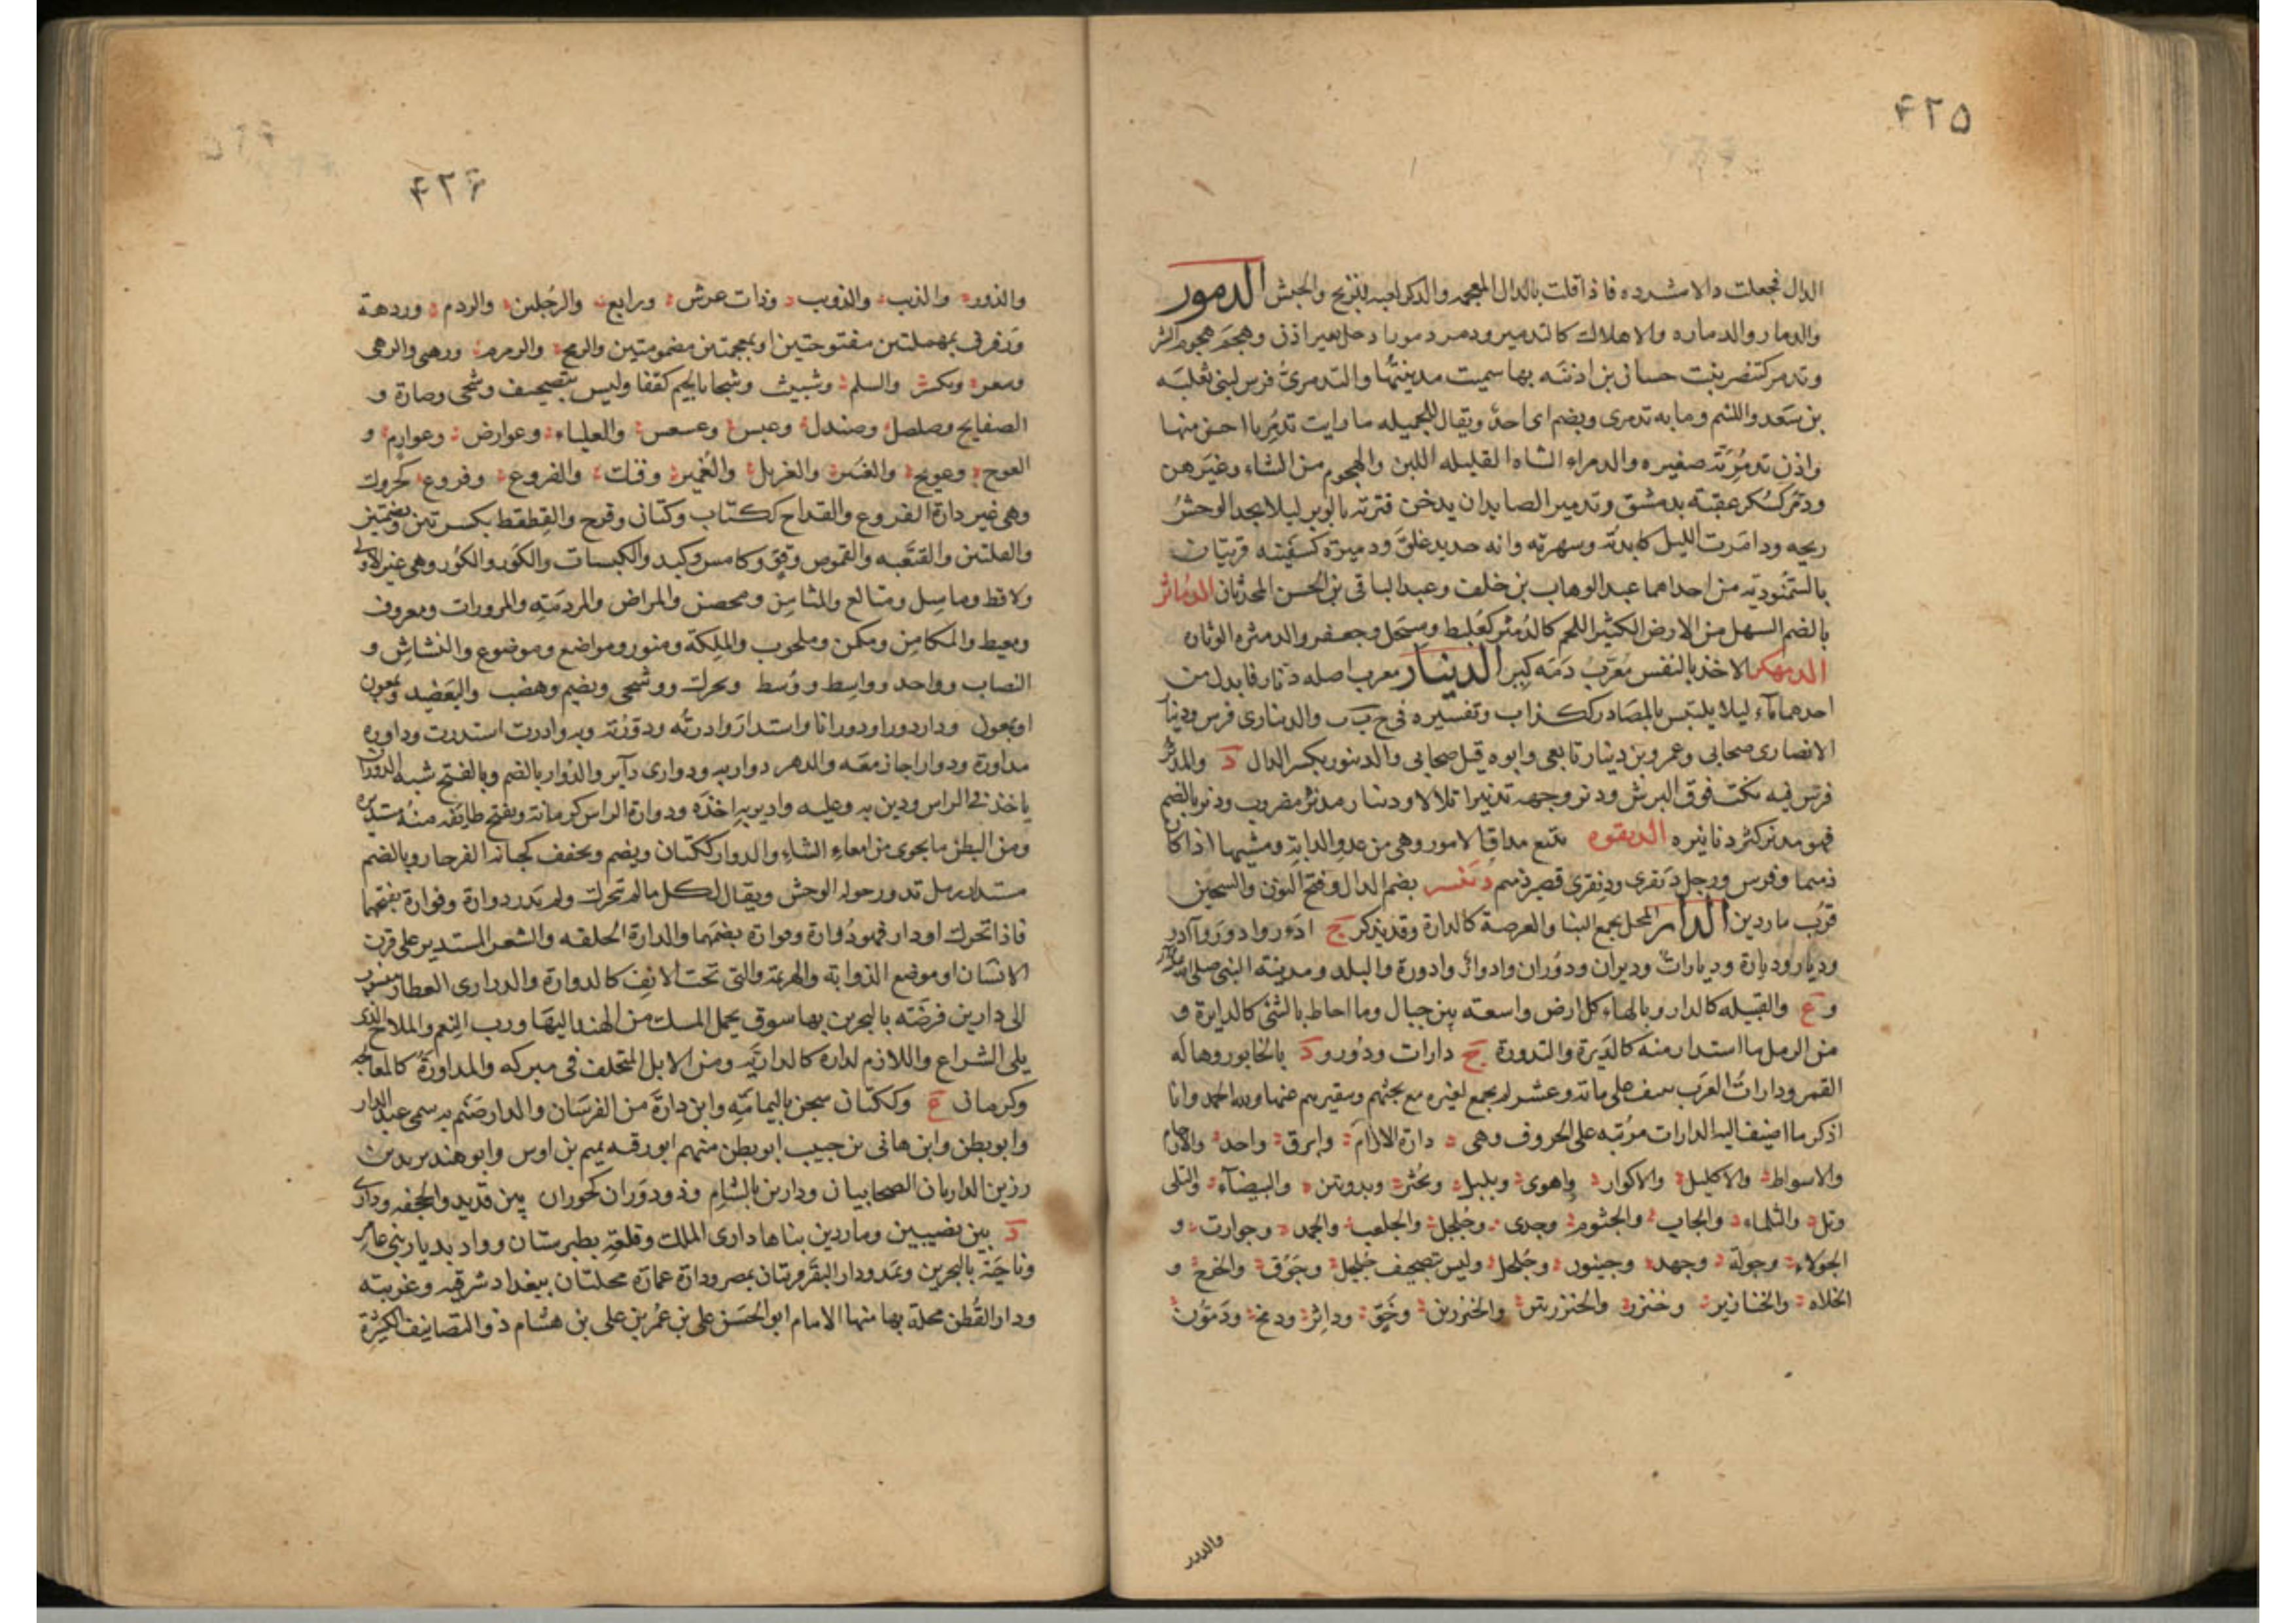 ٤٢٥
الدال فجعلت دالا مشدده فاذا قلت بالدال المعجمه والدكر لعبه للزنج والحبش الدمور
والدمار والدماره والاهلاك كالتدمير ودمر دمورا دخل بغير اذن وهجم هجوم الشر
وتدمر كتنصر بنت حسان بن اذينه بها سميت مدينتها والتدمرى فرس لبنى ثعلبه
بن سعد واللئيم وما به تدمرى ويضم اى احد ويقال للجميله ما رايت تدمريا احسن منها
واذن تدمريه صغيره والدمراء الشاه القليله اللبن والهجوم من النساء وغيرهن
ودمر كسكر عقبة بدمشق وتدمير الصايد ان يدخن قترته بالوبر ليلا يجد الوحش
ريحه ودامرت الليل كابدته وسهرته وانه حديد غلق ودميره كسفينه قريتان
بالسمنوديه من احداهما عبد الوهاب بن خلف وعبد الباقى بن الحسن المحدثان الدماثر
بالضم السهل من الارض الكثير اللحم كالدمثر كعلبط وسبحل وجعفر والدمثره الوثاره
الدمهكر الاخذ بالنفس معرب دمه كير الدينار معرب اصله دنار فابدل من
احدهما ياء ليلا يلتبس بالمصادر ككذاب وتفسيره فى ح ب ب والدينارى فرس ودينار
الانصارى صحابى وعمرو بن دينار تابعى وابوه قيل صحابى والدينور بكسر الدال د والمدنر
فرس فيه نكت فوق البرش ودنر وجهه تدنيرا تلالا ودينار مدنر مضروب ودنر بالضم
فهو مدنر كثر دنانيره الدنقره تتبع مداق الامور وهى من عدو الدابة ومشيها اذا كان
ذميما وفرس ورجل دنقرى ودنقرى قصير ذميم دنيسر بضم الدال وفتح النون والسين
قرب ماردين الدار المحل يجمع البناء والعرصة كالدارة وقد يذكر ج ادور وادور وآدر
وديار وديارة وديارات وديران ودوران وادوار وادورة والبلد ومدينة النبى صلى الله
و ع والقبيله كالدار وبالهاء كل ارض واسعه بين جبال وما احاط بالشئ كالدايرة و
من الرمل ما استدار منه كالديرة والتدورة ج دارات ودور ود بالخابور وهاله
القمر ودارات العرب تنيف على ماىة وعشر لم يجمع لغيره مع بحثهم وتنقيرهم عنها ولله الحمد وانا
اذكر ما اضيف اليه الدارات مرتبه على الحروف وهى دارة الارآم وابرق واحد والارحام
والاسواط والاكليل والاكوار واهوى وبلبل وبحثر وبدوتين والبيضآء والتلى
وتل والثلماء والجاب والجثوم وجدى وجلجل والجلعب والجمد وجوارت و
الجولاء وجولة وجهد وجيفون وحلحل وليس بتصحيف جلجل وحوق والخرج و
الخلاه والخنازير وخنزر والخنزرتين والخنزرين وخو وداثر ودمخ ودمون
والدور
٤٢٦
والدور والذئب والذويب وذات عرش ورابع والرجلين والردم وردهة
ورفرف بمهملتين مفتوحتين او بمعجمتين مضمومتين والرمح والرمرم ورهبى والرهى
وسعر وبكسر والسلم وشبيث وشجا بالجيم كقفا وليس بتصحيف وشحى وصارة و
الصفايح وصلصل وصندل وعبس وعسعس والعلياء وعوارض وعوارم و
العوج وعويج والغبير والغزيل والغمير وفتك والفروع وفروع كجرول
وهى غير دارة الفروع والقداح ككتاب وكتان وقرح والقطقط بكسرتين وبضمتين
والقلتين والقتعبه والقموص وقو وكامس وكبد والكبسات والكور والكور وهى غير الاولى
ولاقط وماسل ومتالع والمثامن ومحصن والمراض والمردمة والمرورات ومعروف
ومعيط والمكامن ومكمن وملحوب والملكة ومنور ومواضع وموضوع والنشاش و
النصاب وواحد وواسط ووسط ويحرك ووشحى ويضم وهضب واليعضيد ويمعون
او يمعول ودار دورا ودورانا واستدار وادرته ودورته وبه وادرت استدرت وداوره
مداورة ودوارا جاز معه والدهر دوار به ودوارى دآير والدوار بالضم وبالفتح شبه الدوران
ياخذ فى الراس ودير به وعليه وادير به اخذه ودوارة الراس كرمانة وبفتح طايفه منه مستديره
ومن البطن ما يحوى من امعاء الشاء والدوار ككتان ويضم ويخفف كجانة الفرجار وبالضم
مستدار رمل تدور حوله الوحش ويقال لكل ما لم تحرك ولم يدر دوارة وفوارة بفتحهما
فاذا تحرك او دار فهو دوارة وفوارة بضمهما والدارة الحلقه والشعر المستدير على قرن
الانسان او موضع الذوابة والهزمة والتى تحت الانف كالدوارة والدارى العطار منسوب
الى دارين فرضه بالبحرين بها سوق يحمل المسك من الهند اليها ورب النعم والملاح الذى
يلى الشراع واللازم لداره كالداريه ومن الابل المتخلف فى مبركه والمداورة كالمعالجه
وكرمانى ع وككتان سجن باليمامة وابن دارة من الفرسان والدار صنم به سمى عبد الدار
وابو بطن وابن هانى بن حبيب ابو بطن منهم ابو رقيه تميم بن اوس وابو هند برير بن
رزين الداريان الصحابيان ودارين بالشام وذو دوران كحوران بين قديد والجحفه ودارى
د بين نصيبين وماردين بناها دارى الملك وقلعة بطبرستان وواد بديار بنى عامر
وناحية بالبحرين وتمد ودار البقر قريتان بمصر ودارة عمارة محلتان ببغداد شرقيه وغربيه
ودار القطن محلة بها منها الامام ابو الحسن على بن عمر بن على بن هشام ذو التصانيف الكثيرة